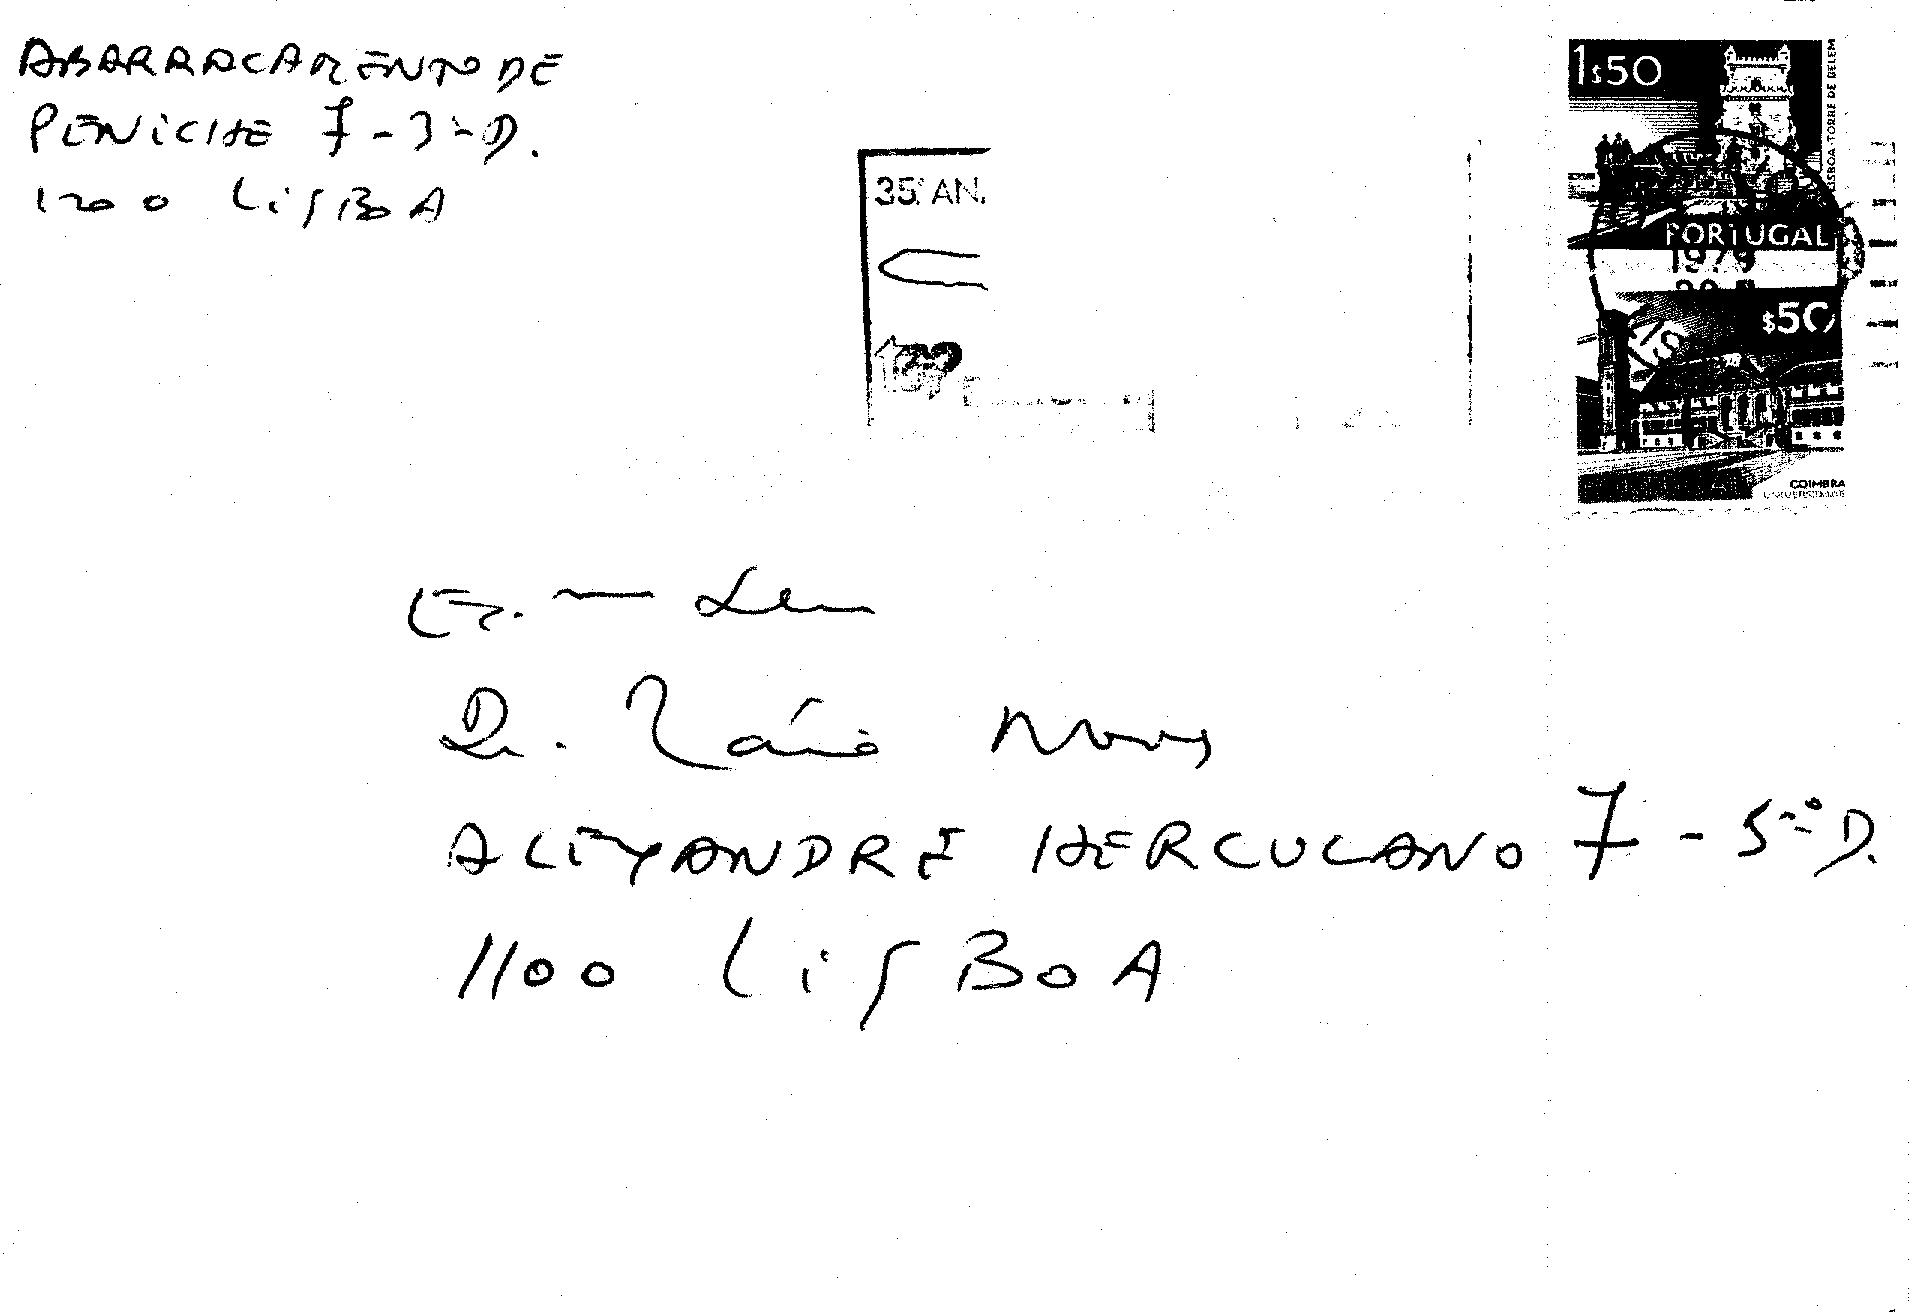 ABARRACAMENTO DE
PENICHE 7-3-D.
1200 LISBOA
35º AN.
1$50
LISBOA-TORRE DE BELEM
PORTUGAL
1979
$50
COIMBRA
UNIVERSIDADE
Dr. Mário Neves
ALEXANDRE HERCULANO 7-5º D.
1100 LISBOA